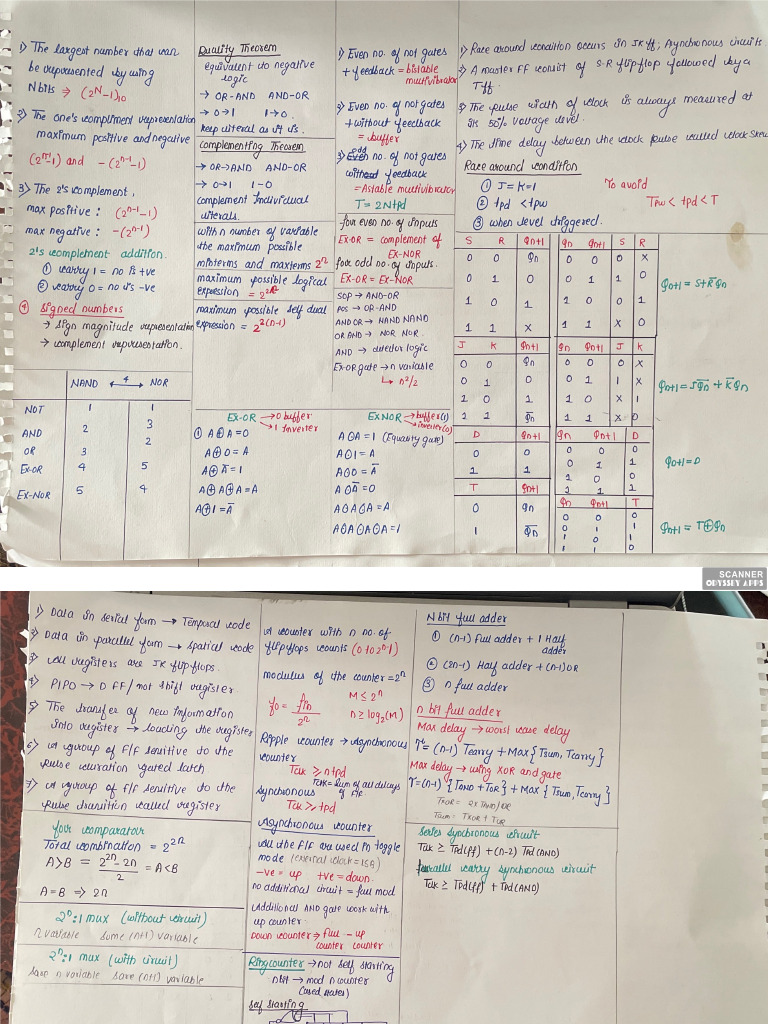 1) The largest number that can
be represented by using
N bits ⇒ (2ᴺ-1)₁₀
2) The one's compliment representation
maximum positive and negative
(2ⁿ⁻¹-1) and -(2ⁿ⁻¹-1)
3) The 2's complement,
max positive : (2ⁿ⁻¹-1)
max negative : -(2ⁿ⁻¹)
2's completment addition.
① carry 1 = no is +ve
② carry 0 = no is -ve
④ Signed numbers
→ sign magnitude representation
→ complement representation.
NAND ←4→ NOR
NOT 1 1
AND 2 3
OR 3 2
EX-OR 4 5
EX-NOR 5 4
Duality Theorem
equivalent to negative
logic
→ OR-AND AND-OR
→ 0→1 1→0.
keep literal as it is.
Complementing Theorem
→ OR→AND AND-OR
→ 0→1 1-0
complement Individual
literals.
with n number of variable
the maximum possible
minterms and maxterms 2ⁿ
maximum possible logical
expression = 2^2ⁿ
maximum possible self dual
expression = 2^2^(n-1)
EX-OR → 0 buffer
→ 1 Inverter
① A⊕A=0
A⊕0=A
A⊕Ā=1
A⊕A⊕A=A
A⊕1=Ā
1) Even no. of not gates
+ feedback = bistable
multivibrator
2) Even no. of not gates
+without feedback
= buffer
3) odd no. of not gates
with feedback
= Astable multivibrator
T = 2Ntpd
for even no. of inputs
EX-OR = complement of
EX-NOR
for odd no. of inputs.
EX-OR = EX-NOR
SOP → AND-OR
POS → OR-AND
AND OR → NAND NAND
OR AND → NOR NOR.
AND → detector logic
EX-OR gate → n variable
↳ n²/2
EXNOR → buffer(1)
→ inverter(0)
A⊙A=1 (Equality gate)
A⊙1=A
A⊙0=Ā
A⊙Ā=0
A⊙A⊙A=A
A⊙A⊙A⊙A=1
1) Race around condition occurs in JK ff; Asynchronous circuits
2) A master FF consist of S-R flipflop followed by a
T ff.
3) The pulse width of clock is always measured at
50% voltage level.
4) The time delay between the clock pulse called clock skew
Race around condition
① J=K=1 To avoid
② tpd < tpw Tpw < tpd < T
③ when level triggered.
S R Qn+1 Qn Qn+1 S R
0 0 Qn 0 0 0 X
0 1 0 0 1 1 0
1 0 1 1 0 0 1
1 1 X 1 1 X 0
Qn+1 = S+R̄Qn
J K Qn+1 Qn Qn+1 J K
0 0 Qn 0 0 0 X
0 1 0 0 1 1 X
1 0 1 1 0 X 1
1 1 Q̄n 1 1 X 0
Qn+1 = JQ̄n + K̄Qn
D Qn+1 Qn Qn+1 D
0 0 0 0 0
1 1 0 1 1
1 0 0
1 1 1
Qn+1=D
T Qn+1 Qn Qn+1 T
0 Qn 0 0 0
1 Q̄n 0 1 1
1 0 1
1 1 0
Qn+1 = T⊕Qn
SCANNER
ODYSSEY APPS
1) Data in serial form → Temporal code
2) Data in parallel form → spatial code
3) all registers are JK flipflops.
4) PIPO → D FF / not shift register.
5) The transfer of new information
into register → loading the register
6) A group of F/F sensitive to the
pulse duration gated latch
7) A group of F/F sensitive to the
pulse transition called register
for comparator
Total combination = 2²ⁿ
A>B = (2²ⁿ-2n)/2 = A<B
A=B ⇒ 2n
2ⁿ:1 mux (without circuit)
n variable some (n+1) variable
2ⁿ:1 mux (with circuit)
n variable (n+1) variable
A counter with n no. of
flipflops counts (0 to 2ⁿ-1)
modulus of the counter = 2ⁿ
fo = fin/2ⁿ M ≤ 2ⁿ
n ≥ log₂(M)
Ripple counter → Asynchronous
counter
Tclk ≥ ntpd
Tclk = sum of all delays
of F/F.
Synchronous
Tclk ≥ tpd
Asynchronous counter
all the F/F are used in toggle
mode (external clock = LSB)
-ve = up +ve = down.
no additional circuit = full mod
Additional AND gate work with
up counter.
Down counter → full - up
counter counter
Ring counter → not self starting
n bit → mod n counter
(used states)
self starting
N bit full adder
① (n-1) Full adder + 1 Half
adder
② (2n-1) Half adder + (n-1) OR
③ n full adder
n bit full adder
Max delay → worst case delay
τ = (n-1) Tcarry + Max{Tsum, Tcarry}
Max delay → using XOR and gate
τ = (n-1) {TAND + TOR} + Max{Tsum, Tcarry}
TXOR = 2x TAND/OR
Tsum = TXOR + TOR
Series synchronous circuit
Tclk ≥ Tpd(ff) + (n-2) Tpd(AND)
parallel carry synchronous circuit
Tclk ≥ Tpd(ff) + Tpd(AND)